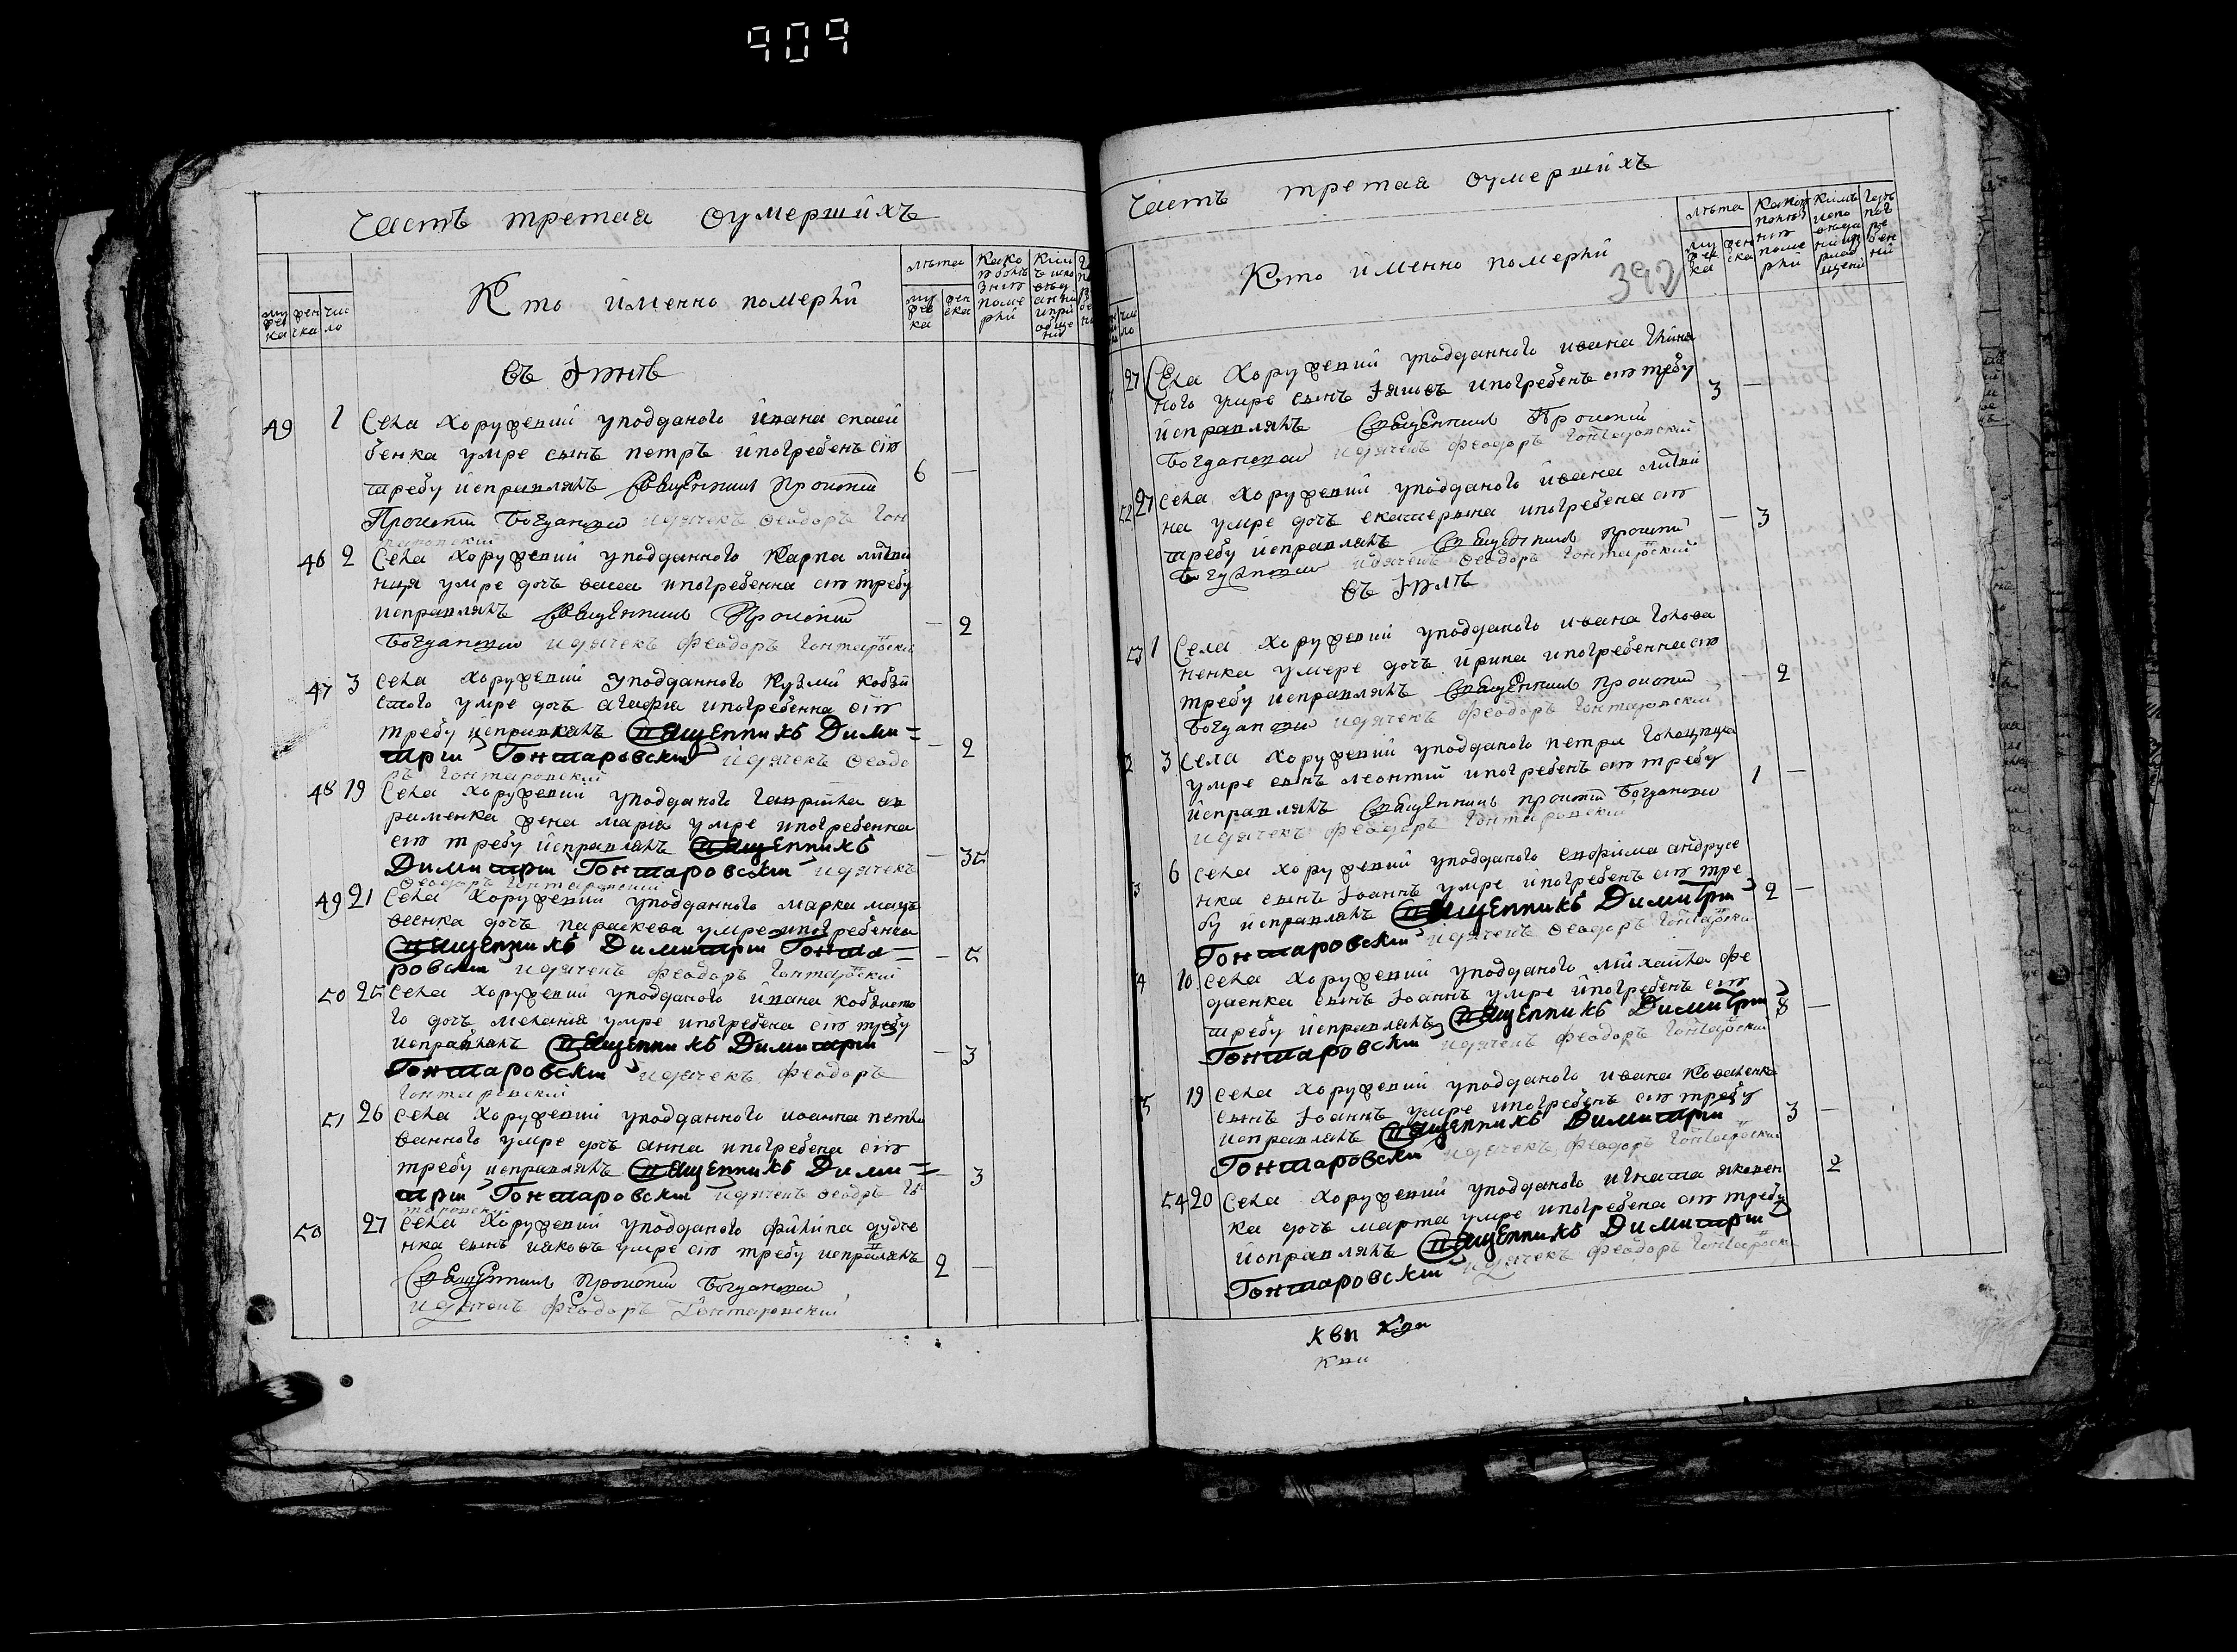 909
Часть третая оумершихъ
Кто именно померлй
лѣта
муж
ска
жен
ска
чис
ло
въ Іюнѣ
49 1 Села Хоружевки уподданого ивана
бенка умре сынъ петръ ипогребенъ сію
требу исправлялъ Священникъ Прокопій 6 —
Прокопій Богдановичъ идячекъ Феодоръ Гон
таровский
46 2 Села Хоружевки уподданного Карпа литви
нця умре дочъ васса ипогребенна сію требу
исправлялъ Священникъ Прокопій — 2
Богдановичъ идячекъ Феодоръ Гонтаровский
47 3 Села Хоружевки уподданного Кузми кобзи
стого умре дочъ агафия ипогребенна сію
требу исправлялъ Священникъ Дими=
трий Гонтаровский идячекъ Феодо — 2
ръ Гонтаровский
48 19 Села Хоружевки уподданого гаврийла
раменка жена мария умре ипогребенна
сію требу исправлялъ Священникъ — 35
Димитрий Гонтаровский идячекъ
Феодоръ Гонтаровский
49 21 Села Хоружевки уподданого марка мацъ
веенка дочъ параскева умре ипогребенна
Священникъ Димитрий Гонта= — 5
ровский идячекъ Феодоръ Гонтаровский
50 25 Села Хоружевки уподданого ивана кобзисто
го дочъ мелания умре ипогребена сію требу
исправлялъ Священникъ Димитрий — 3
Гонтаровский идячекъ Феодоръ
Гонтаровский
51 26 Села Хоружевки уподданного иоанна петли
ванного умре дочъ анна ипогребена сію
требу исправлялъ Священникъ Дими= — 3
трий Гонтаровский идячекъ Феодоръ Го
таровский
50 27 Села Хоружевки уподданого филипа дудче
нка сынъ иаковъ умре сію требу исправлялъ
Священникъ Прокопий Богдановичъ 2 —
идячекъ Феодоръ Гонтаровский
Часть третая оумершихъ
Кто именно померлй
392
лѣта
27 Села Хоружевки уподданного ивана
ного умре сынъ Іяковъ ипогребенъ сію требу 3 —
исправлялъ Священникъ Прокопий
Богдановичъ идячекъ Феодоръ Гонтаровский
52 27 Села Хоружевки уподданого ивана литви
на умре дочъ екатерина ипогребена сію
требу исправлялъ Священникъ Прокопий — 3
Богдановичъ идячекъ Феодоръ Гонтаровский
въ Іюлѣ
53 1 Села Хоружевки уподданого ивана голова
ненка умере дочъ ирина ипогребенна сію
требу исправлялъ Священникъ Прокопий — 2
Богдановичъ идячекъ Феодоръ Гонтаровский
2 3 Села Хоружевки уподданого петра
умре сынъ леонтий ипогребенъ сію требу 1 —
исправлялъ Священникъ Прокопий Богдановичъ
идячекъ Феодоръ Гонтаровский
3 6 Села Хоружевки уподданого евфима андрусе
нка сынъ Іоаннъ умре ипогребенъ сію тре
бу исправлялъ Священникъ Димитрий 2 —
Гонтаровский идячекъ Феодоръ Гонтаровский
4 10 Села Хоружевки уподданого михайла фе
даенка сынъ Іоаннъ умре ипогребенъ сію
требу исправлялъ Священникъ Димитрий 8 —
Гонтаровский идячекъ Феодоръ Гонтаровский
5 19 Села Хоружевки уподданого ивана коваленка
сынъ Іоаннъ умре ипогребенъ сію требу
исправлялъ Священникъ Димитрий 3 —
Гонтаровский идячекъ Феодоръ Гонтаровский
54 20 Села Хоружевки уподданого игната яковен
ка дочъ марта умре ипогребена сію требу 2
исправлялъ Священникъ Димитрий
Гонтаровский идячекъ Феодоръ Гонтаровский